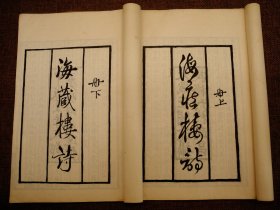 海藏樓詩
册上
海藏樓詩
册下